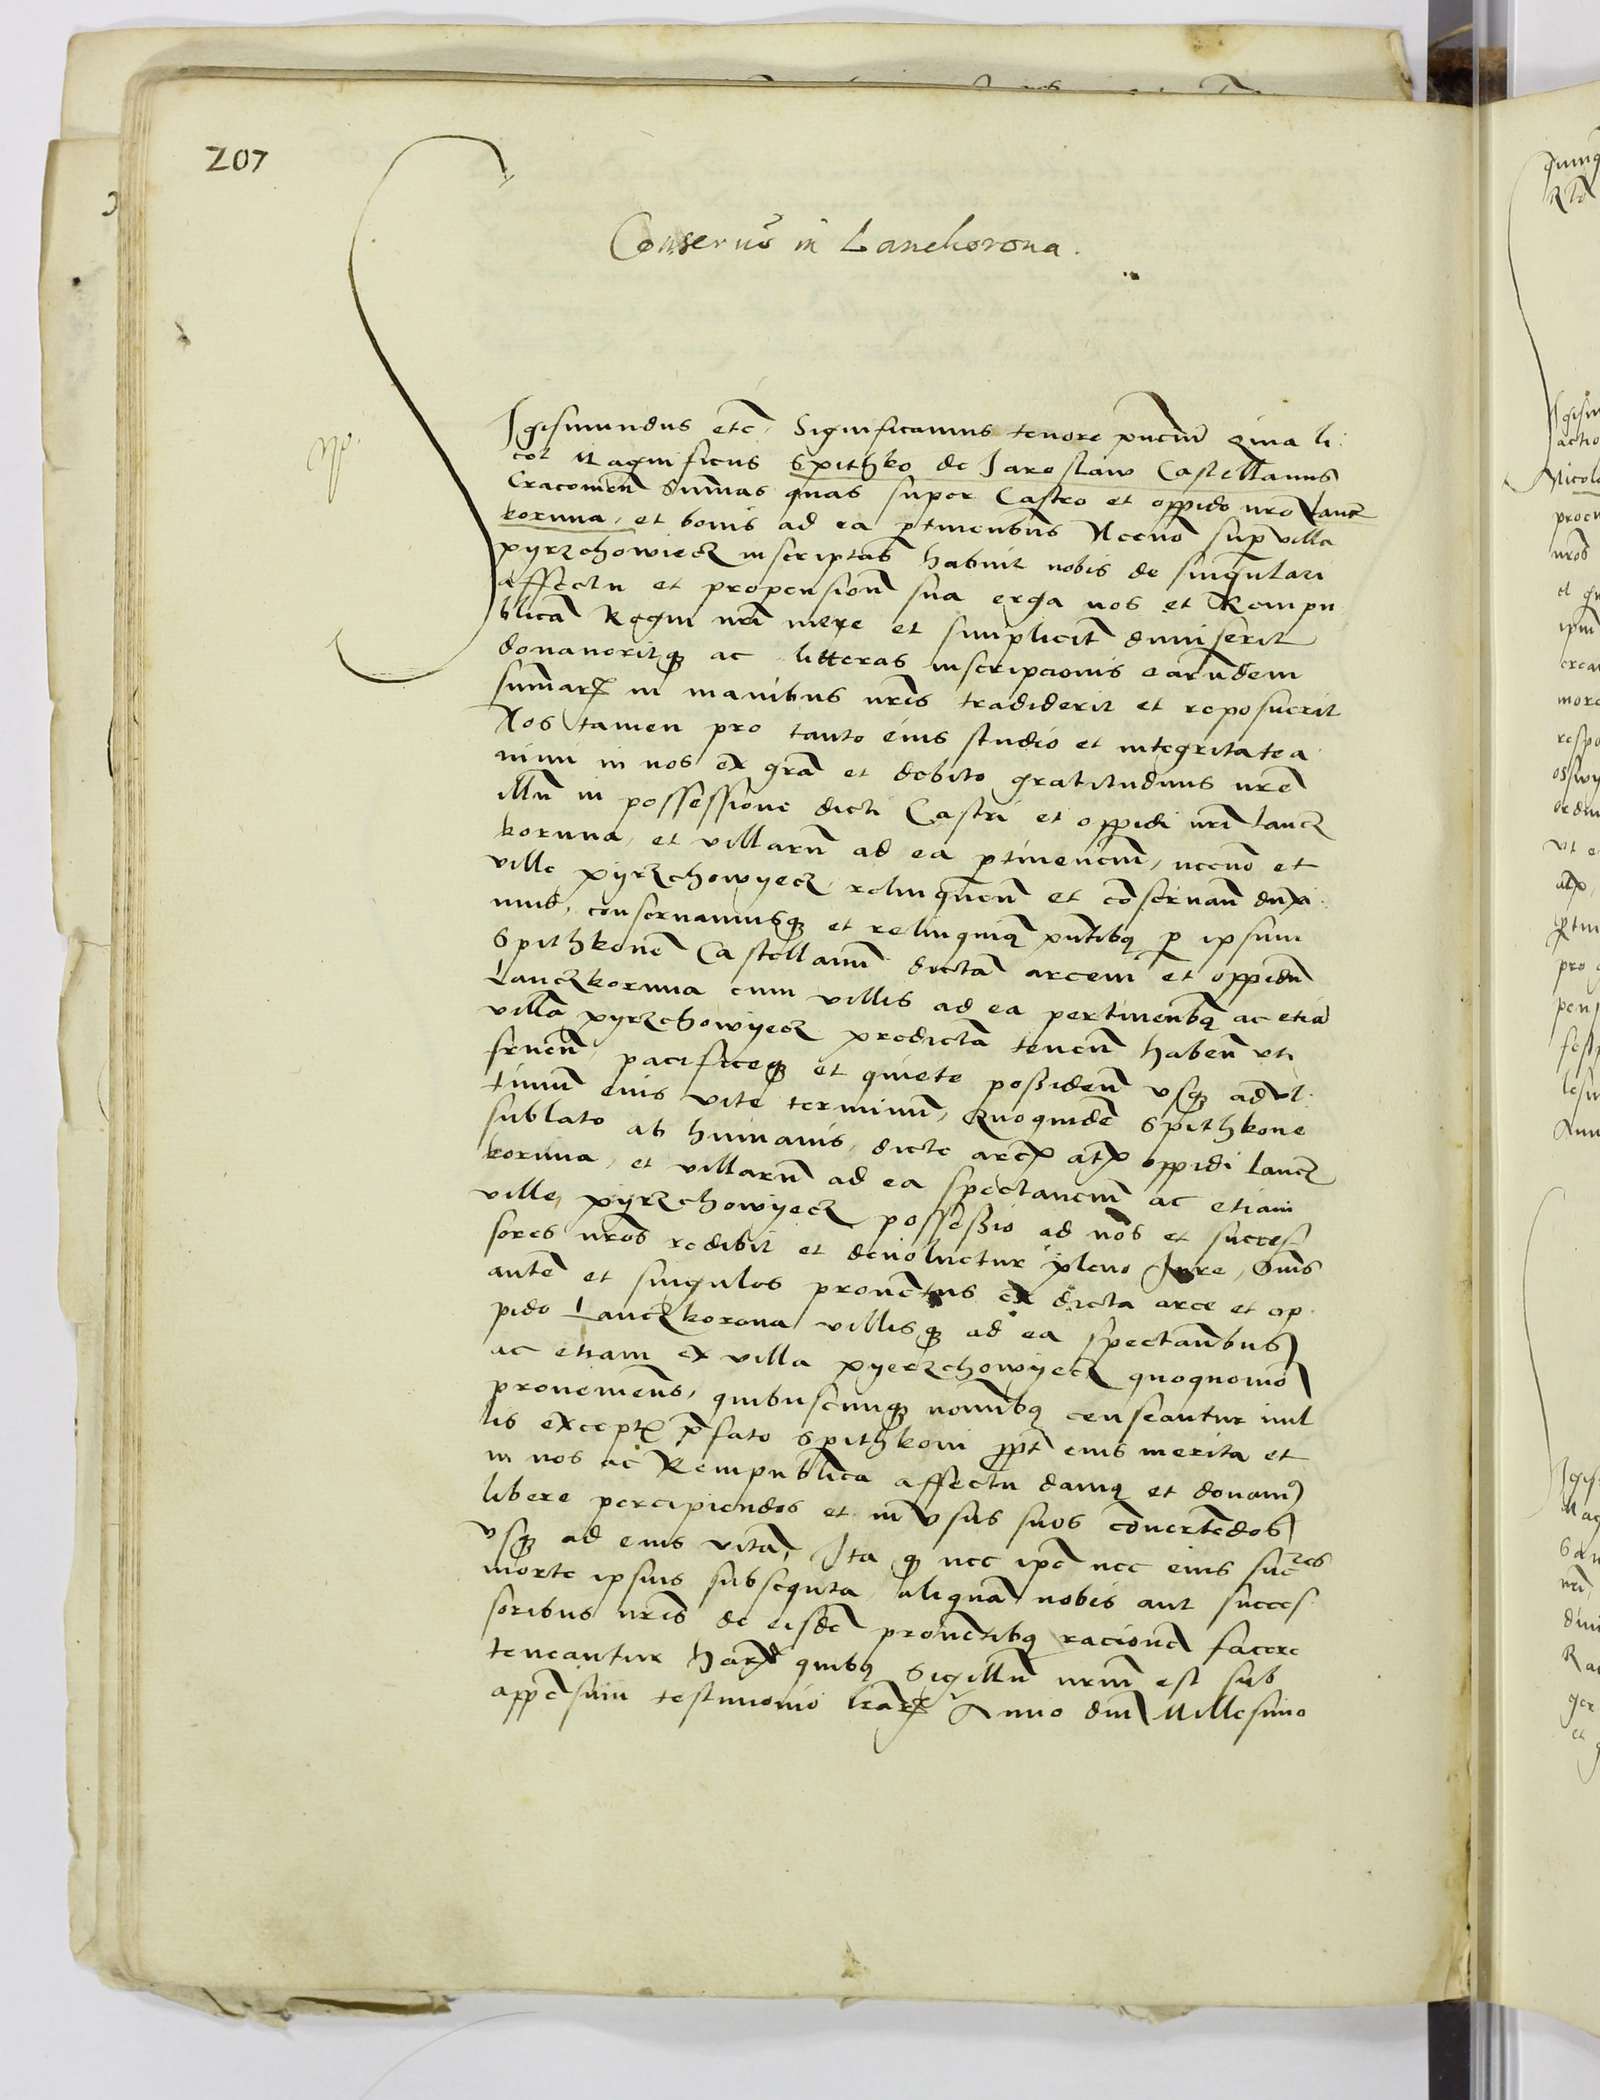 207
Conseruo in Lanchorona.
Sigismundus etc̃. Significamus tenore pñcium Qma li
cet Magnificus Spithko de Jaroslaw Castellanus
Cracouien̄ Sum̄as quas super Castro et oppido nr̃o Lancz
koruna, et bonis ad ea ptinenbus Necno sup villa
pyrzchowiecz inscriptas habuit nobis de singulari
affectu et propension̄ sua erga nos et Rempu
blicā Regni nr̃i mere et simplicit̄ dimiserit
donaueritqꝫ ac litteras inscripcionis earundem
sum̄arꝫ in manibus nr̃is tradiderit et reposuerit
Nos tamen pro tanto eius studio et integritate a
nimi in nos ex gr̃a et debito gratitudinis nr̃e
illū in possessione dicti Castri et oppidi nr̃i Lancz
koruna, et villarū ad ea ptinencium, necno et
ville pyrzchowyecz, relinquen̄ et conseruan̄ duxi
mus, conseruamusqꝫ et relinquimꝰ pñtibꝰ p ipsum
Spithkonē Castellanū dictā arcem et oppidū
Lanczkoruna cum villis ad ea pertinenbꝰ ac etiā
villā pyrzchowyecz predictā tenen̄ haben̄ uti
fruen̄, pacificeqꝫ et quiete possiden̄ vsqꝫ ad vl
timū eius vite terminū, Quoquidē Spithkone
sublato ab humanis, dicte arcꝭ atqꝫ oppidi Lancz
korunna, et villarū ad ea spectanciū ac etiam
ville, pyrzchowyecz possessio ad nos et succes
sores nr̃os redibit et deuoluetur pleno Jure, Om̄s
autē et singulos prouentus ex dicta arce et op
pido Lanczkorona villisqꝫ ad ea spectanbus
ac etiam ex villa pyerzchowyecz quoquomō
prouenien̄s, quibuscunqꝫ nominibꝰ censeantur nul
lis exceptꝭ p̄fato Spithkoni ppt̄ eius merita et
in nos ac Rempublicā affectū damꝰ et donamꝰ
libere percipiendos et in vsus suos cōuertēdos
vsqꝫ ad eius vitā, Ita qꝫ nec ipe nec eius succes
morte ipsius subsequta, aliquā nobis aut succes
soribus nr̃is de eisdē prouentibꝰ racionē facere
teneantur Harꝫ quibꝰ Sigillū nr̃um est sub
appēsum testimonio lrārꝫ Anno dn̄i Millesimo